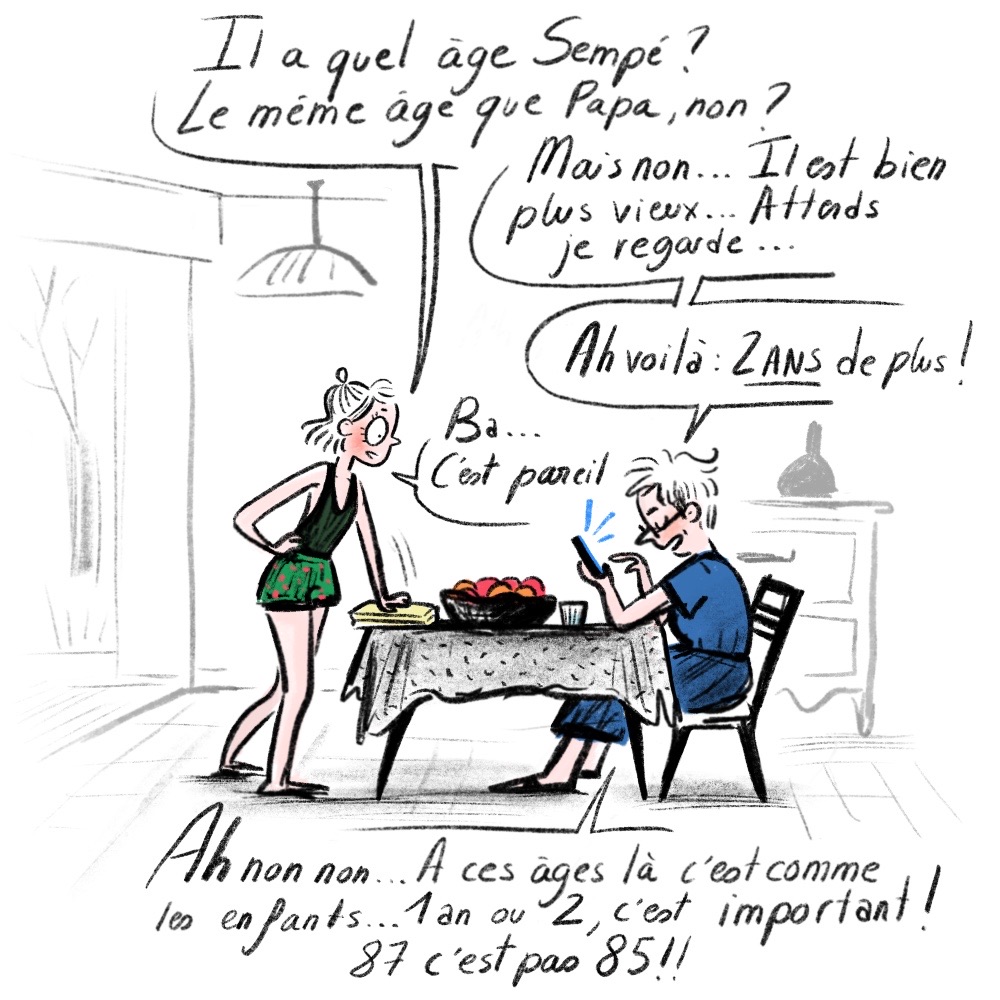 Il a quel âge Sempé ?
Le même âge que Papa, non ?
Mais non... Il est bien
plus vieux... Attends
je regarde...
Ah voilà : 2 ANS de plus !
Ba...
C'est pareil
Ah non non... A ces âges là c'est comme
les enfants... 1 an ou 2, c'est important !
87 c'est pas 85 !!